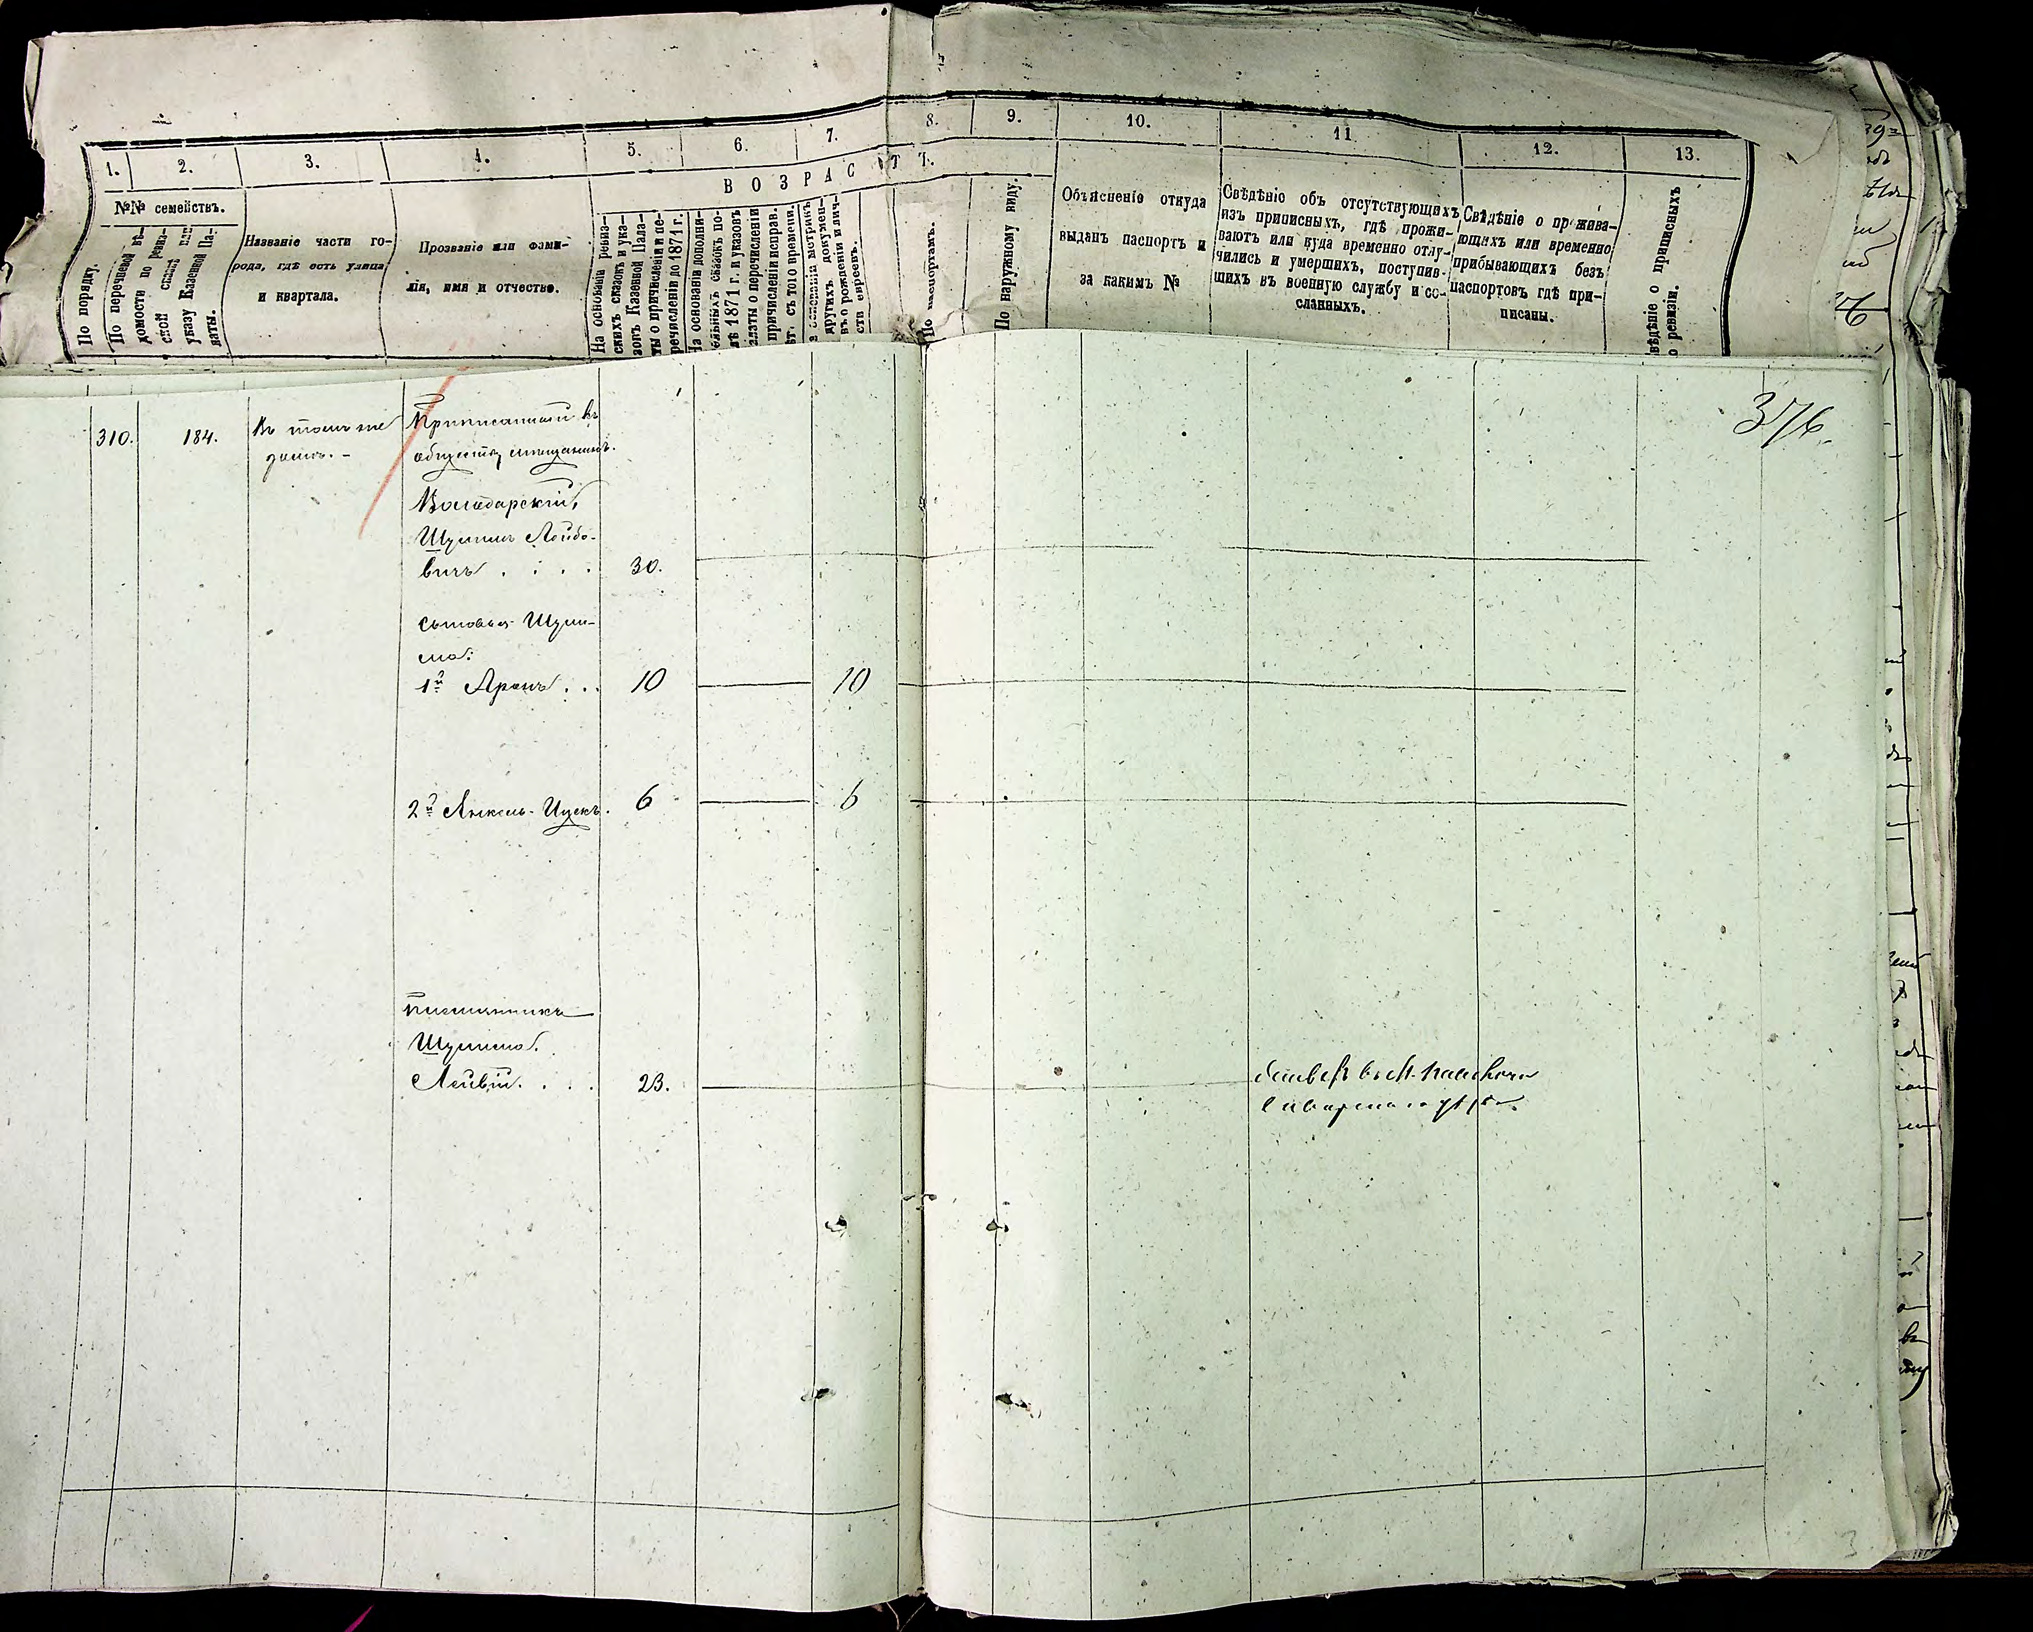 1. 2. 3. 4. 5. 6. 7. 8. 9. 10. 11 12. 13.
ВОЗРАСТЪ.
№№ семействъ.
По порядку.
По перечневой вѣ-
домости по ревиз-
ской сказкѣ или
указу Казенной Па-
латы.
Названіе части го-
рода, гдѣ есть улица
и квартала.
Прозваніе или фами-
лія, имя и отчество.
На основаніи ревиз-
скихъ сказокъ и ука-
зовъ Казенной Пала-
ты о причисленіи и пе-
речисленіи до 1871 г.
На основаніи дополни-
тельныхъ сказокъ по-
слѣ 1871 г. и указовъ
Палаты о перечисленіи
причисленіи исправ.
лѣтъ съ того времени.
На основаніи метрикъ
другихъ докумен-
въ о рожденіи и лич-
сти евреевъ.
По паспортамъ.
По наружному виду.
Объясненіе откуда
выданъ паспортъ и
за какимъ №
Свѣдѣніе объ отсутствующихъ
изъ приписныхъ, гдѣ прожи-
ваютъ или куда временно отлу-
чились и умершихъ, поступив-
шихъ въ военную службу и со-
сланныхъ.
Свѣдѣніе о прожива-
ющихъ или временно
прибывающихъ безъ
паспортовъ гдѣ при-
писаны.
вѣдѣніе о приписныхъ
о ревизіи.
376.
310. 184. Въ томъ же
домѣ. -
Приписанный къ
обществу мѣщанинъ.
Володарскій,
Шулимъ Лейбо-
вичъ . . . . 30.
сыновья Шули-
ма:
1й Аронъ . . . 10 10
2й Янкель-Ицекъ. 6 6
племянникъ
Шулима.
Лейвій . . . . 23.